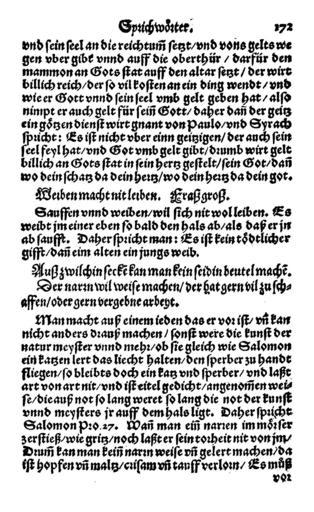 Sprichwörter. 172
vnd sein seel an die reichtum̃ setzt/vnd vons gelts we
gen vber gibt vnnd auff die oberthür / darfür den
mammon an Gots stat auff den altar setzt / der wirt
billich reich / der so vil kosten an ein ding wendt / vnd
wie er Gott vnnd sein seel vmb gelt geben hat / also
nimpt er auch gelt für sein̄ Gott / daher dan̄ der geitz
ein götzen dienst wirt gnant von Paulo / vnd Syrach
spricht: Es ist nicht vber einn geitzigen / der auch sein
seel feyl hat / vnd Got vmb gelt gibt / drumb wirt gelt
billich an Gots stat in sein hertz gestelt / sein Got / dan̄
wo dein schatz da dein hertz / wo dein hertz da dein got.
Weiben macht nit leiben. Fraß groß.
Sauffen vnnd weiben / wil sich nit wol leiben. Es
weibt jm einer eben so bald den hals ab / als daß er jn
ab saufft. Daher spricht man: Es ist kein tödtlicher
gifft / dan̄ ein alten ein jungs weib.
Auß zwilchin seckē kan man kein seidin beutel machē.
Der narin wil weise machen / der hat gern vil zu sch-
affen / oder gern vergebne arbeyt.
Man macht auß einem ieden das er vor ist / vn̄ kan
nicht anders drauß machen / sonst were die kunst der
natur meyster vnnd mehr / ob sie gleich wie Salomon
ein katzen lert das liecht halten / den sperber zu handt
fliegen / so bleibts doch ein katz vnd sperber / vnd laßt
art von art nit / vnd ist eitel gedicht / angenom̄en wei-
se / die auß not so lang weret so lang die not der kunst
vnnd meysters jr auff dem hals ligt. Daher spricht
Salomon Pro. 27. Wan̄ man ein̄ narien im mörser
zerstieß / wie gritz / noch laßt er sein torheit nit von jm /
Drum̄ kan man kein̄ narin weise vn̄ gelert machen / da
ist hopfen vn̄ maltz / crisam vn̄ tauff verlorn / Es můß
vor